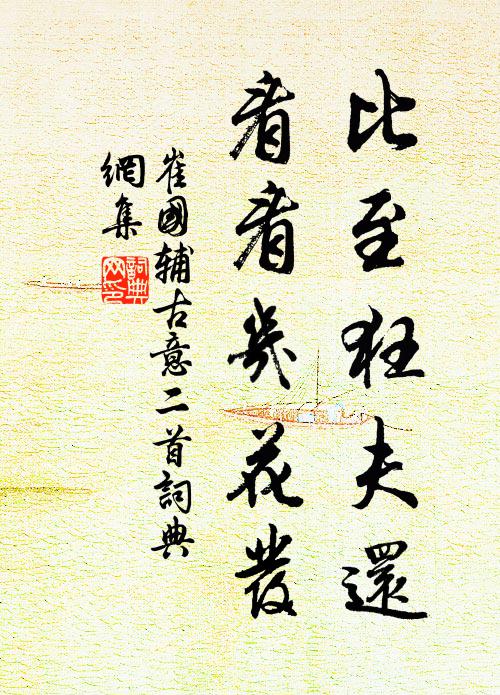 比至狂夫還
看看幾花發
崔國輔古意二首詞典
網集
詞典網印